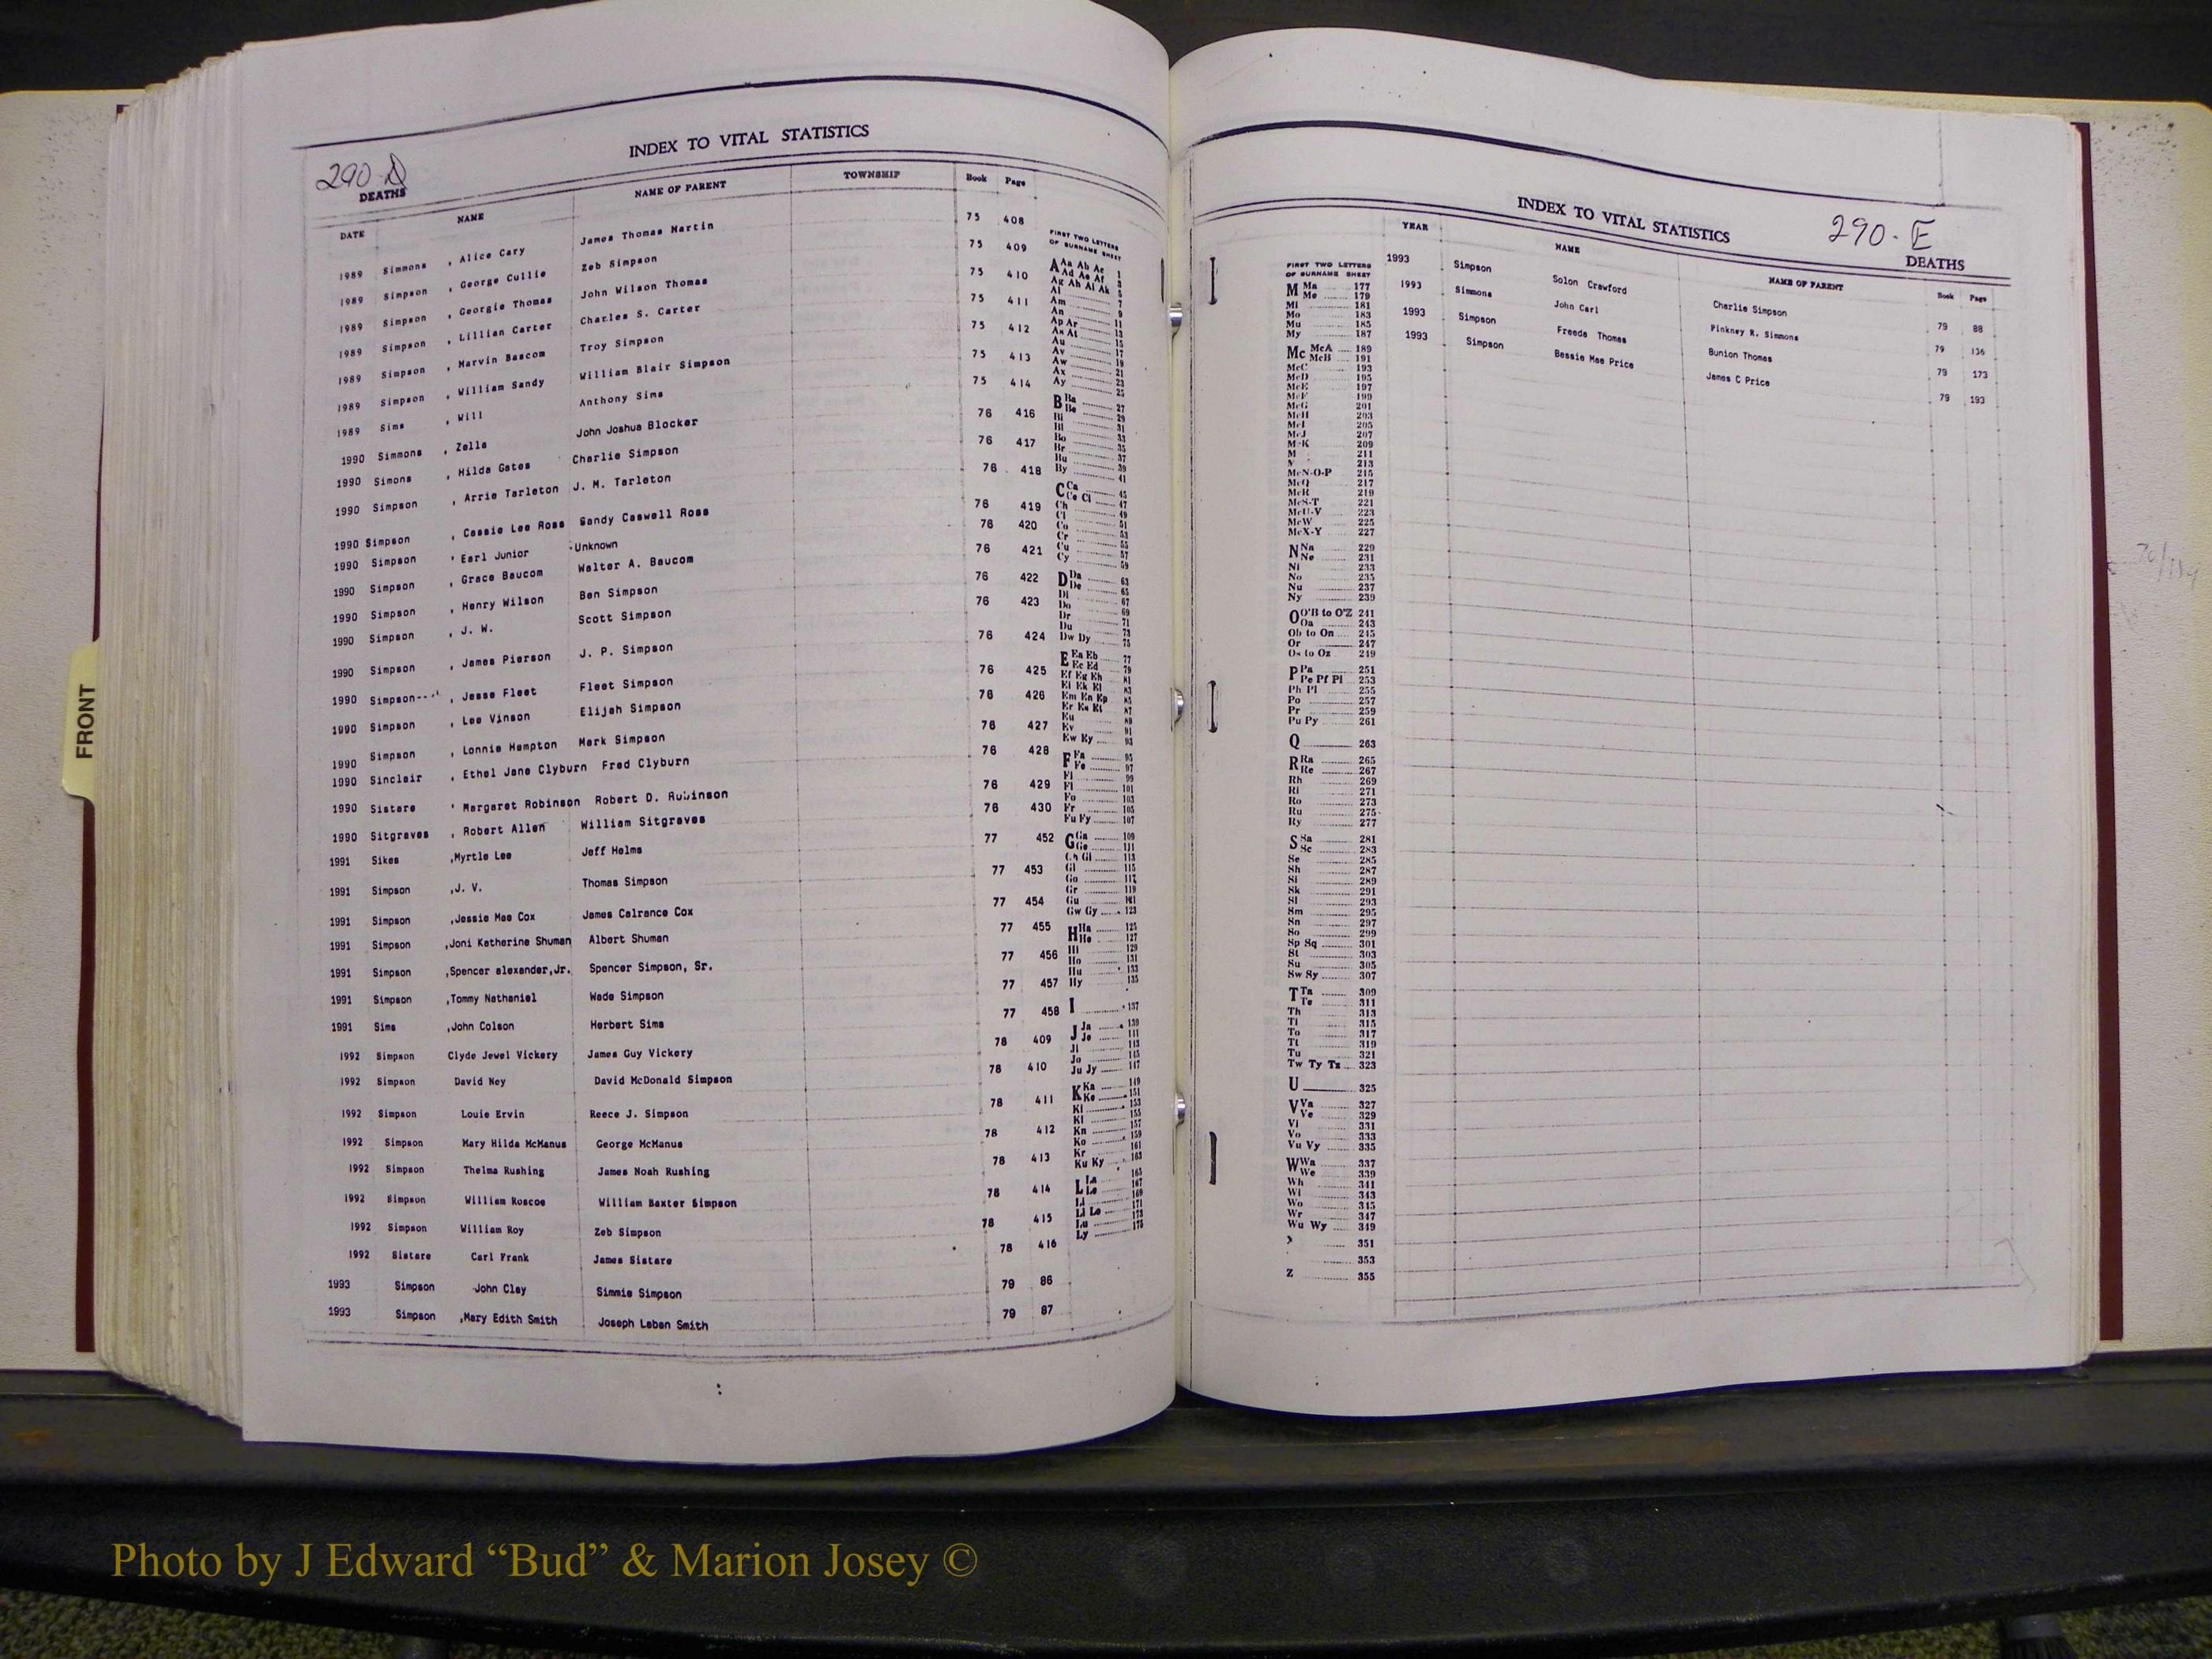 INDEX TO VITAL STATISTICS
290-D
DEATHS
DATE NAME NAME OF PARENT TOWNSHIP Book Page
1989 Simmons , Alice Cary James Thomas Martin 75 408
1989 Simpson , George Cullie Zeb Simpson 75 409
1989 Simpson , Georgie Thomas John Wilson Thomas 75 410
1989 Simpson , Lillian Carter Charles S. Carter 75 411
1989 Simpson , Marvin Bascom Troy Simpson 75 412
1989 Simpson , William Sandy William Blair Simpson 75 413
1989 Sims , Will Anthony Sims 75 414
1990 Simmons , Zella John Joshua Blocker 76 416
1990 Simons , Hilda Gates Charlie Simpson 76 417
1990 Simpson , Arrie Tarleton J. M. Tarleton 76 418
1990 Simpson , Cassie Lee Ross Sandy Caswell Ross 76 419
1990 Simpson , Earl Junior Unknown 76 420
1990 Simpson , Grace Baucom Walter A. Baucom 76 421
1990 Simpson , Henry Wilson Ben Simpson 76 422
1990 Simpson , J. W. Scott Simpson 76 423
1990 Simpson , James Pierson J. P. Simpson 76 424
1990 Simpson , Jesse Fleet Fleet Simpson 76 425
1990 Simpson , Lee Vinson Elijah Simpson 76 426
1990 Simpson , Lonnie Hampton Mark Simpson 76 427
1990 Sinclair , Ethel Jane Clyburn Fred Clyburn 76 428
1990 Sistare , Margaret Robinson Robert D. Robinson 76 429
1990 Sitgraves , Robert Allen William Sitgraves 76 430
1991 Sikes ,Myrtle Lee Jeff Helms 77 452
1991 Simpson ,J. V. Thomas Simpson 77 453
1991 Simpson ,Jessie Mae Cox James Calrance Cox 77 454
1991 Simpson ,Joni Katherine Shuman Albert Shuman 77 455
1991 Simpson ,Spencer alexander,Jr. Spencer Simpson, Sr. 77 456
1991 Simpson ,Tommy Nathaniel Wade Simpson 77 457
1991 Sims ,John Colson Herbert Sims 77 458
1992 Simpson Clyde Jewel Vickery James Guy Vickery 78 409
1992 Simpson David Ney David McDonald Simpson 78 410
1992 Simpson Louie Ervin Reece J. Simpson 78 411
1992 Simpson Mary Hilda McManus George McManus 78 412
1992 Simpson Thelma Rushing James Noah Rushing 78 413
1992 Simpson William Roscoe William Baxter Simpson 78 414
1992 Simpson William Roy Zeb Simpson 78 415
1992 Sistare Carl Frank James Sistare 78 416
1993 Simpson John Clay Simmie Simpson 79 86
1993 Simpson ,Mary Edith Smith Joseph Laban Smith 79 87
FIRST TWO LETTERS
OF SURNAME SHEET
A Aa Ab Ac 1
Ad Ae Af 3
Ag Ah Ai Ak 5
Al 7
Am 9
An 11
Ap Ar 13
As At 15
Au 17
Av 19
Aw 21
Ax 23
Ay 25
B Ba 27
Be 29
Bi 31
Bl 33
Bo 35
Br 37
Bu 39
By 41
C Ca 45
Ce Ci 47
Ch 49
Cl 51
Co 53
Cr 55
Cu 57
Cy 59
D Da 63
De 65
Di 67
Do 69
Dr 71
Du 73
Dw Dy 75
E Ea Eb 77
Ec Ed 79
Ef Eg Eh 81
Ei Ek El 83
Em En Ep 85
Er Es Et 87
Eu 89
Ev 91
Ew Ey 93
F Fa 95
Fe 97
Fi 99
Fl 101
Fo 103
Fr 105
Fu Fy 107
G Ga 109
Ge 111
Gh Gi 113
Gl 115
Go 117
Gr 119
Gu 121
Gw Gy 123
H Ha 125
He 127
Hi 129
Ho 131
Hu 133
Hy 135
I 137
J Ja 139
Je 141
Ji 143
Jo 145
Ju Jy 147
K Ka 149
Ke 151
Ki 153
Kl 155
Kn 157
Ko 159
Kr 161
Ku Ky 163
L La 165
Le 167
Li 169
Ll Lo 171
Lu 173
Ly 175
INDEX TO VITAL STATISTICS
290-E
DEATHS
YEAR NAME NAME OF PARENT Book Page
1993 Simpson Solon Crawford Charlie Simpson 79 88
1993 Simmons John Carl Pinkney R. Simmons 79 136
1993 Simpson Freeda Thomas Bunion Thomas 79 173
1993 Simpson Bessie Mae Price James C Price 79 193
FIRST TWO LETTERS
OF SURNAME SHEET
M Ma 177
Me 179
Mi 181
Mo 183
Mu 185
My 187
Mc McA 189
McB 191
McC 193
McD 195
McE 197
McF 199
McG 201
McH 203
McI 205
McJ 207
McK 209
M 211
213
McN-O-P 215
McQ 217
McR 219
McS-T 221
McU-V 223
McW 225
McX-Y 227
N Na 229
Ne 231
Ni 233
No 235
Nu 237
Ny 239
O O'B to O'Z 241
Oa 243
Ob to On 245
Or 247
Os to Oz 249
P Pa 251
Pe Pf Pi 253
Ph Pl 255
Po 257
Pr 259
Pu Py 261
Q 263
R Ra 265
Re 267
Rh 269
Ri 271
Ro 273
Ru 275
Ry 277
S Sa 281
Sc 283
Se 285
Sh 287
Si 289
Sk 291
Sl 293
Sm 295
Sn 297
So 299
Sp Sq 301
St 303
Su 305
Sw Sy 307
T Ta 309
Te 311
Th 313
Ti 315
To 317
Tt 319
Tu 321
Tw Ty Tz 323
U 325
V Va 327
Ve 329
Vi 331
Vo 333
Vu Vy 335
W Wa 337
We 339
Wh 341
Wi 343
Wo 345
Wr 347
Wu Wy 349
351
353
Z 355
FRONT
Photo by J Edward “Bud” & Marion Josey ©